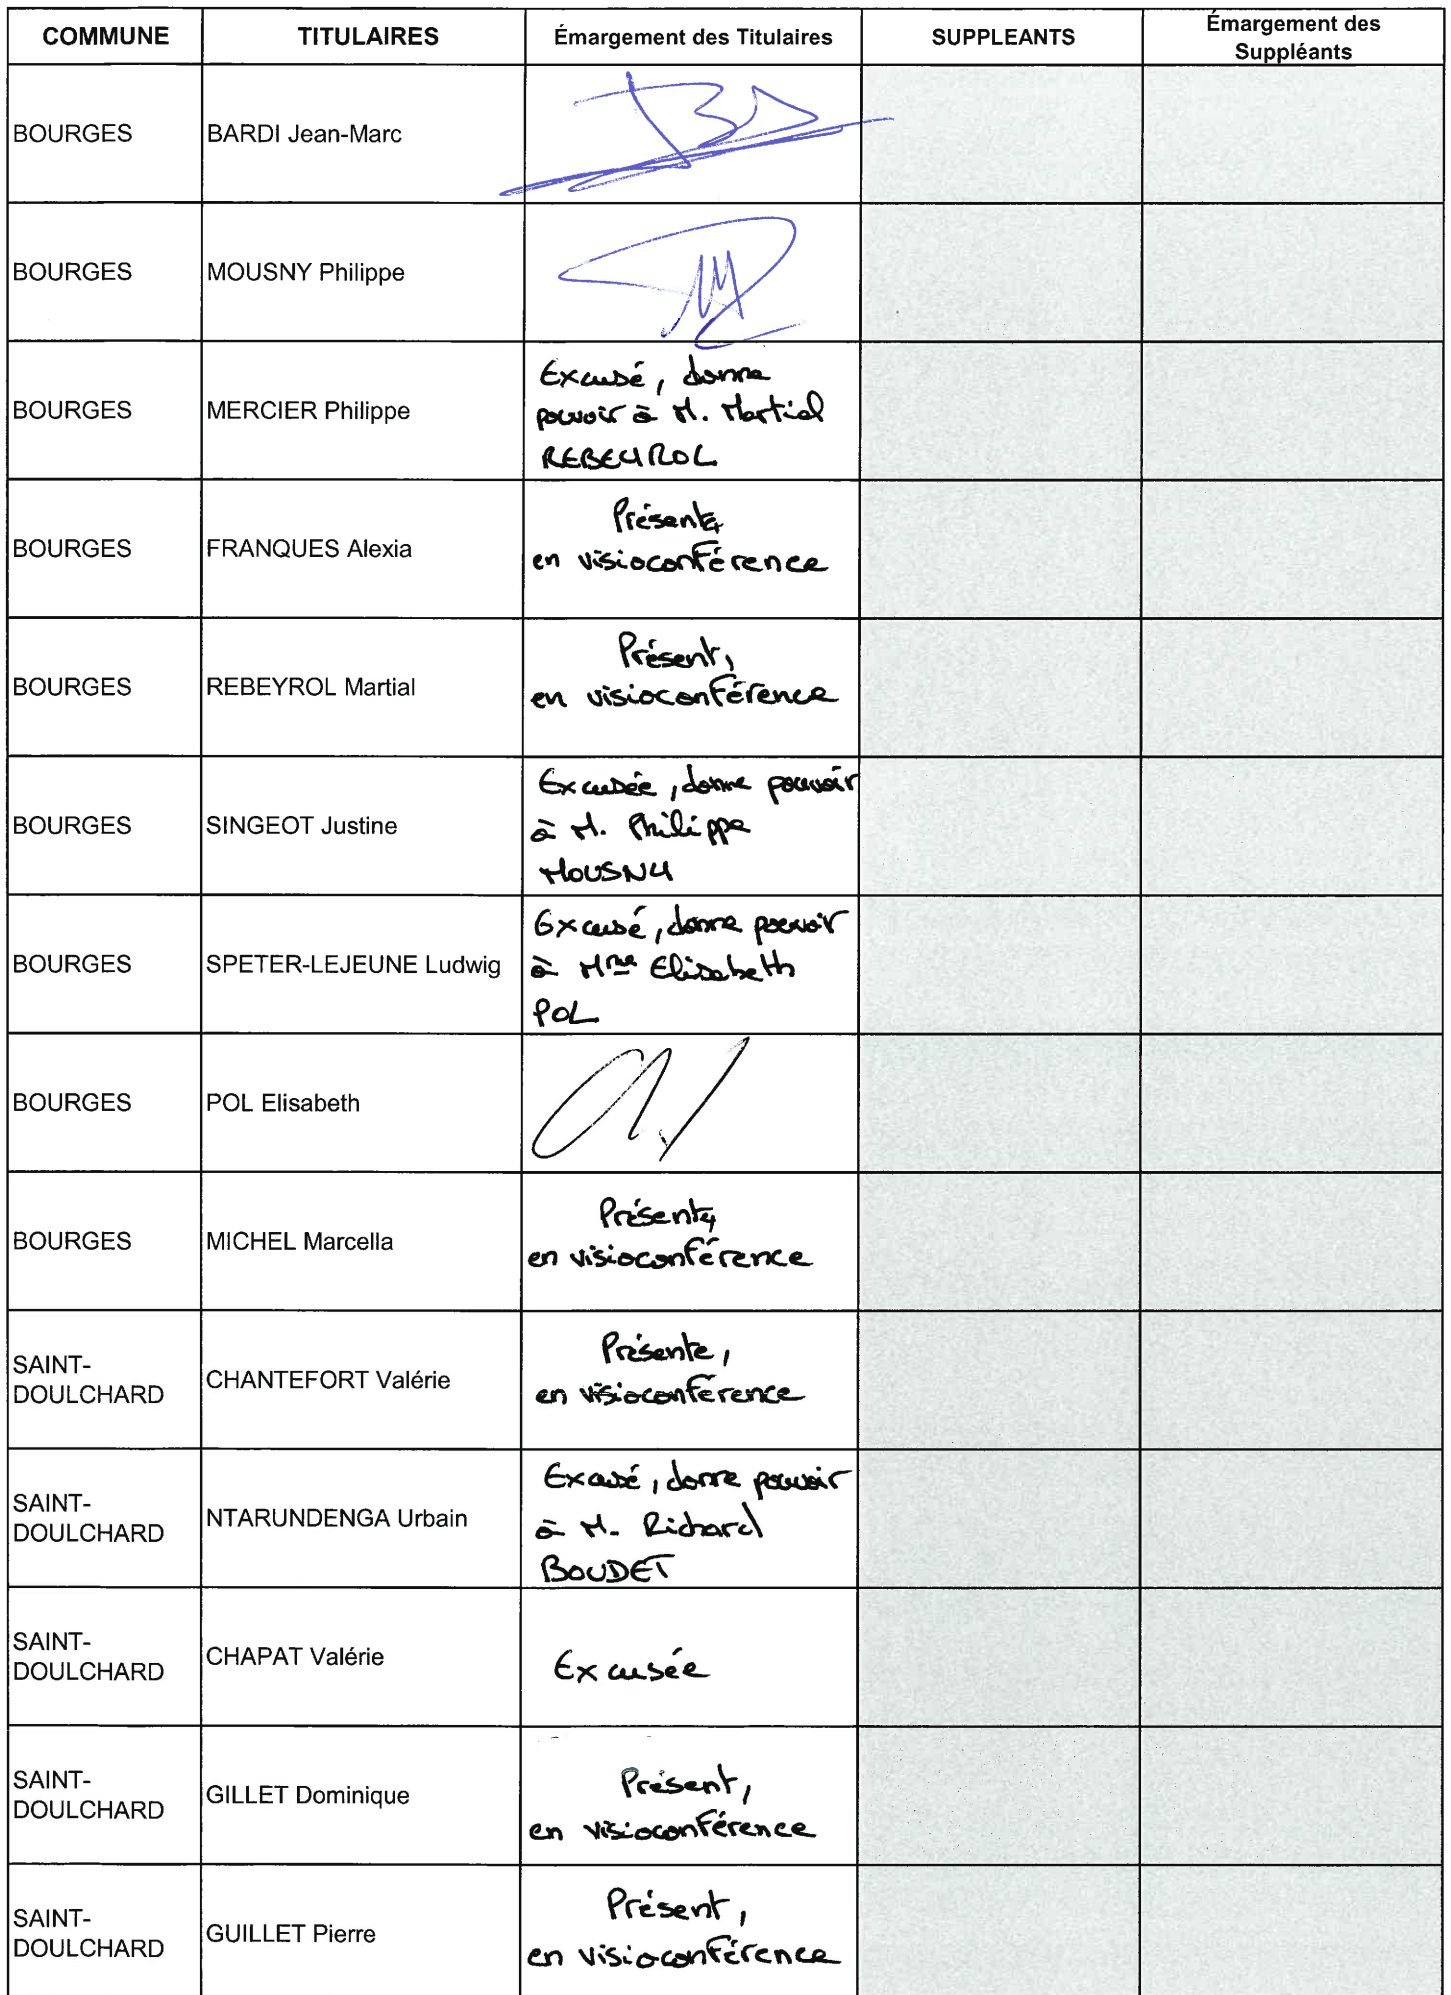 COMMUNE TITULAIRES Émargement des Titulaires SUPPLEANTS Émargement des
Suppléants
BOURGES BARDI Jean-Marc
BOURGES MOUSNY Philippe
BOURGES MERCIER Philippe
Excusé, donne
pouvoir à M. Martial
REBEYROL
BOURGES FRANQUES Alexia
Présente,
en visioconférence
BOURGES REBEYROL Martial
Présent,
en visioconférence
BOURGES SINGEOT Justine
Excusée, donne pouvoir
à M. Philippe
MOUSNY
BOURGES SPETER-LEJEUNE Ludwig
Excusé, donne pouvoir
à Mme Elisabeth
POL
BOURGES POL Elisabeth
BOURGES MICHEL Marcella
Présente,
en visioconférence
SAINT-
DOULCHARD CHANTEFORT Valérie
Présente,
en visioconférence
SAINT-
DOULCHARD NTARUNDENGA Urbain
Excusé, donne pouvoir
à M. Richard
BOUDET
SAINT-
DOULCHARD CHAPAT Valérie
Excusée
SAINT-
DOULCHARD GILLET Dominique
Présent,
en visioconférence
SAINT-
DOULCHARD GUILLET Pierre
Présent,
en visioconférence